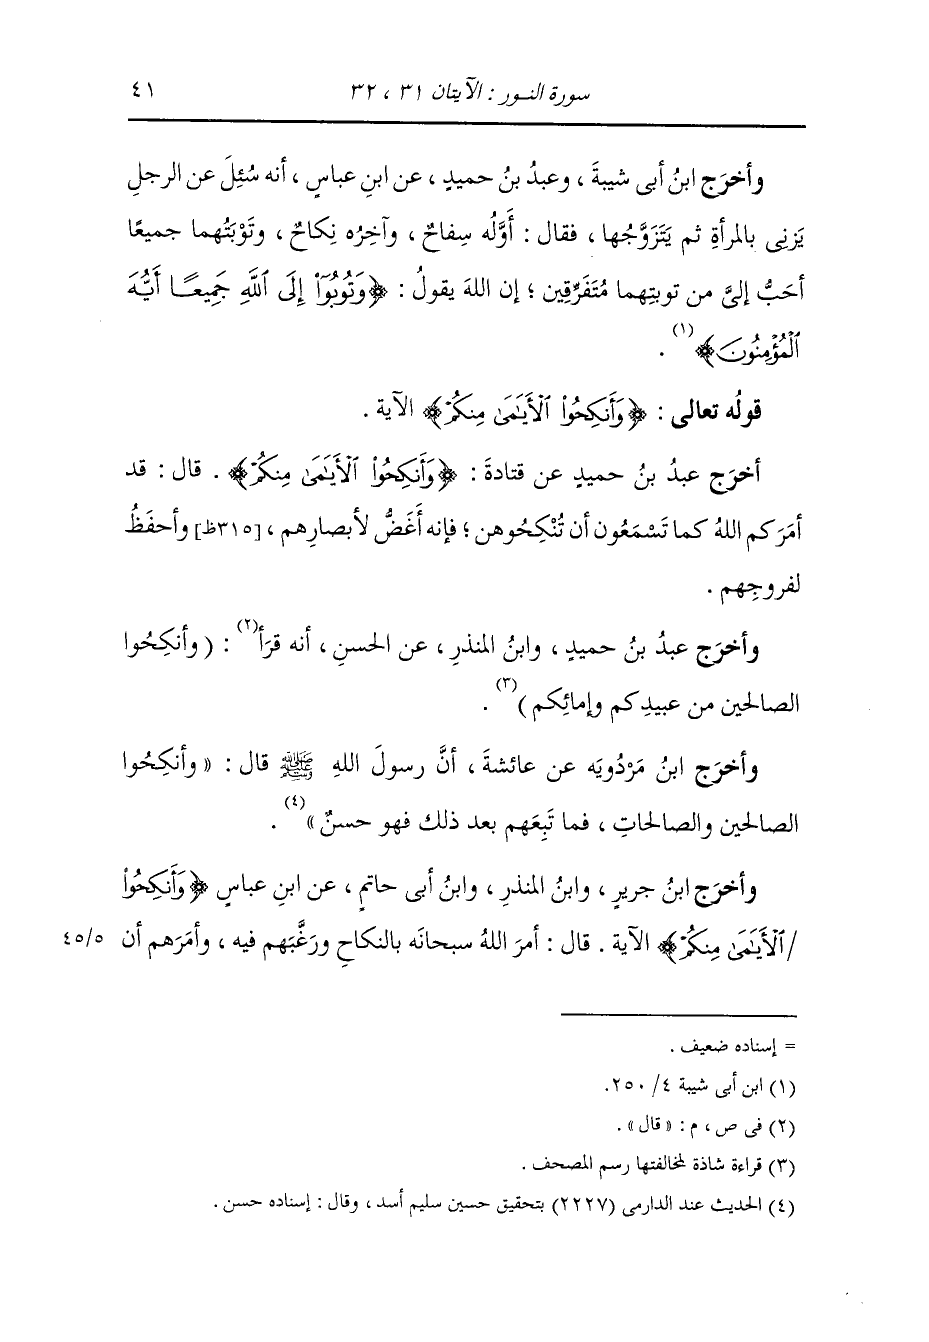 سورة النور : الآيتان ٣١ ، ٣٢
٤١
وأخرَج ابنُ أبى شيبةَ ، وعبدُ بنُ حميدٍ ، عن ابنِ عباسٍ ، أنه سُئِلَ عن الرجلِ
يَزنِى بالمرأةِ ثم يَتَزوَّجُها ، فقال : أَوَّلُه سِفاحٌ ، وآخِرُه نِكاحٌ ، وتَوْبَتُهما جميعًا
أحَبُّ إلىَّ من توبتِهما مُتَفَرِّقِين ؛ إن اللهَ يقولُ : ﴿وَتُوبُوٓا۟ إِلَى ٱللَّهِ جَمِيعًا أَيُّهَ
ٱلْمُؤْمِنُونَ﴾(١) .
قولُه تعالى : ﴿وَأَنكِحُوا۟ ٱلْأَيَـٰمَىٰ مِنكُمْ﴾ الآية .
أخرَج عبدُ بنُ حميدٍ عن قتادةَ : ﴿وَأَنكِحُوا۟ ٱلْأَيَـٰمَىٰ مِنكُمْ﴾ . قال : قد
أمَرَكم اللهُ كما تَسْمَعُون أن تُنْكِحُوهن ؛ فإنه أَغَضُّ لأبصارِهم ، [٣١٥ظ] وأحفَظُ
لفروجِهم .
وأخرَج عبدُ بنُ حميدٍ ، وابنُ المنذرِ ، عن الحسنِ ، أنه قرَأ(٢) : ( وأنكِحُوا
الصالحين من عبيدِكم وإمائِكم )(٣) .
وأخرَج ابنُ مَرْدُويَه عن عائشةَ ، أنَّ رسولَ اللهِ ﷺ قال : « وأنكِحُوا
الصالحين والصالحاتِ ، فما تَبِعَهم بعد ذلك فهو حسنٌ »(٤) .
وأخرَج ابنُ جريرٍ ، وابنُ المنذرِ ، وابنُ أبى حاتمٍ ، عن ابنِ عباسٍ ﴿وَأَنكِحُوا۟
/ٱلْأَيَـٰمَىٰ مِنكُمْ﴾ الآية . قال : أمرَ اللهُ سبحانَه بالنكاحِ ورَغَّبَهم فيه ، وأمَرَهم أن
٤٥/٥
= إسناده ضعيف .
(١) ابن أبى شيبة ٤/ ٢٥٠.
(٢) فى ص ، م : « قال » .
(٣) قراءة شاذة لمخالفتها رسم المصحف .
(٤) الحديث عند الدارمى (٢٢٢٧) بتحقيق حسين سليم أسد ، وقال : إسناده حسن .